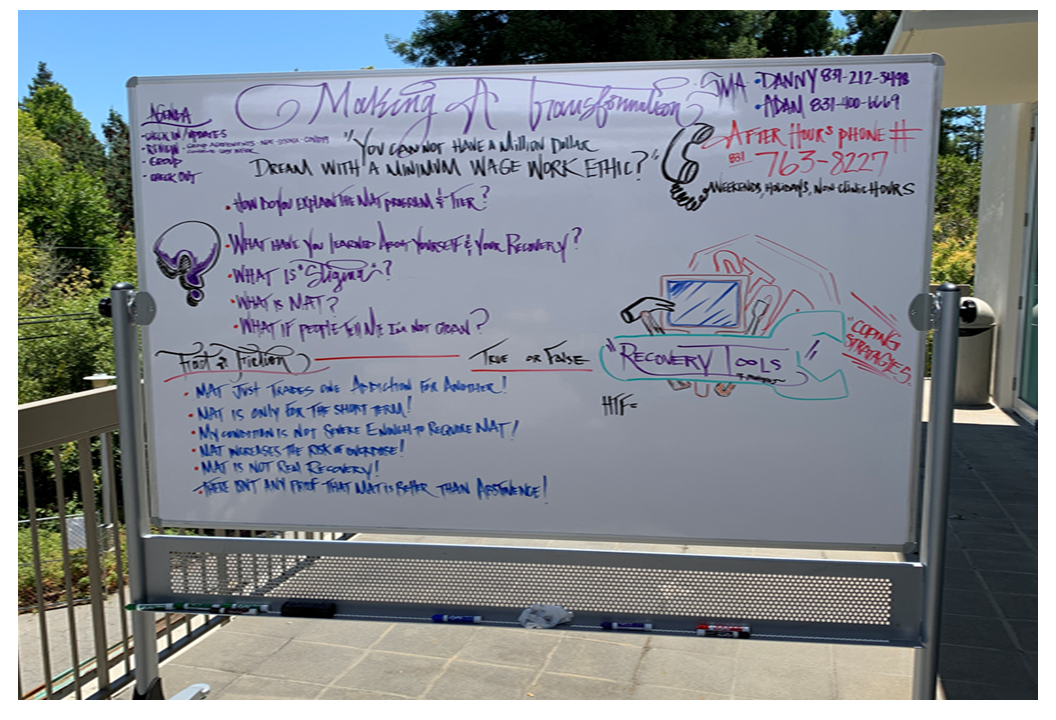 Making A Transformation
SMA • DANNY 831-212-3498
• ADAM 831-400-6669
AGENDA
- CHECK IN / UPDATES
- REVIEW -
- GROUP
- CHECK OUT
"YOU CAN NOT HAVE A Million Dollar
DREAM WITH A MINIMUM WAGE WORK ETHIC?"
AFTER HOURS PHONE #
831 763-8227
WEEKENDS, HOLIDAYS, NON CLINIC HOURS
• HOW DO YOU EXPLAIN THE MAT PROGRAM & TIER?
• WHAT HAVE YOU LEARNED ABOUT YOURSELF & YOUR RECOVERY?
• WHAT IS "Stigma"?
• WHAT IS MAT?
• WHAT IF PEOPLE TELL ME I'M NOT CLEAN?
"RECOVERY TOOLS"
"COPING
STRATAGIES"
Fact or Friction TRUE OR FALSE
HTF=
• MAT JUST TRADES ONE ADDICTION FOR ANOTHER!
• MAT IS ONLY FOR THE SHORT TERM!
• MY CONDITION IS NOT SEVERE ENOUGH TO REQUIRE MAT!
• MAT INCREASES THE RISK OF OVERDOSE!
• MAT IS NOT REAL RECOVERY!
• THERE ISN'T ANY PROOF THAT MAT IS BETTER THAN ABSTINENCE!